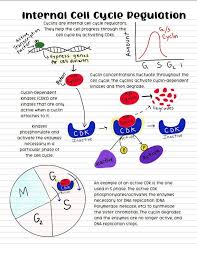 Internal Cell Cycle Regulation
Cyclins are internal cell cycle regulators.
They help the cell progress through the
cell cycle by activating CDKs.
Transcription
Factor
Express genes
for cell division
Amount
G1/S
Cyclin
G1 S G2
Cyclin concentrations fluctuate throughout
the cell cycle. The cyclins activate cyclin-dependent
kinases and then degrade.
Cyclin-dependent
kinases (CDKs) are
kinases that are only
active when a cyclin
attaches to it.
Degrades
Kinases
phosphorylate and
activate the enzymes
necessary in a
particular phase of
the cell cycle.
CDK
CDK
CDK
Inactive
Active
Inactive
M
G1
G2
S
CDK
Active
An example of an active CDK is the one
used in S phase. The active CDK
phosphorylates/activates the enzymes
necessary for DNA replication (DNA
Polymerase, Helicase, etc.) to synthesize
the sister chromatid. The cyclin degrades
and the enzymes are no longer active,
and DNA replication stops.